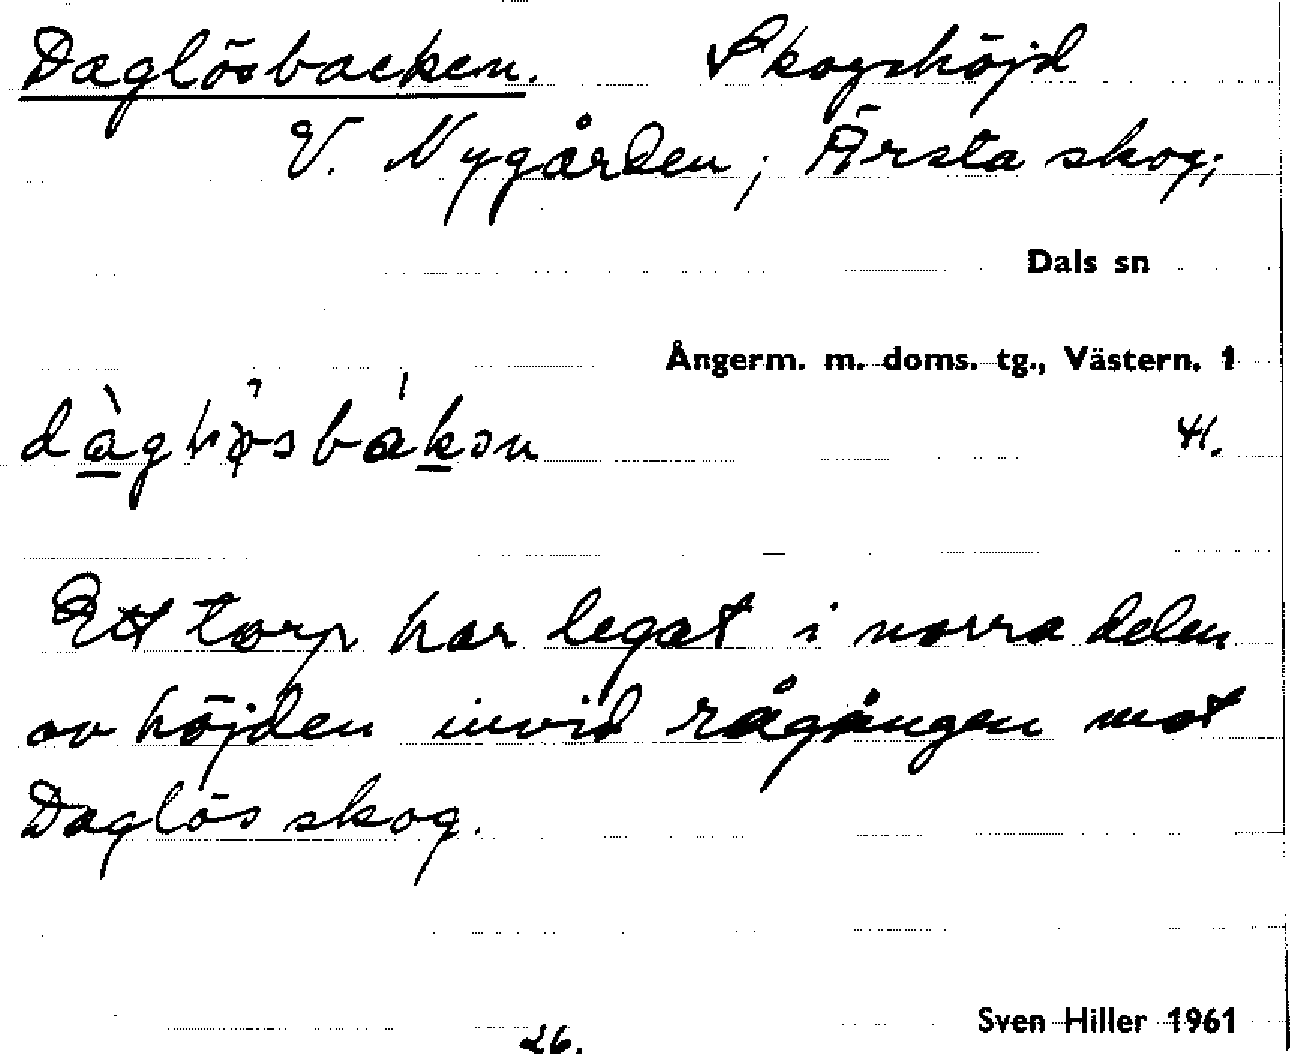 Daglösbacken. Skogshöjd
V. Nygården, Ärsta skog,
Dals sn
Ångerm. m. doms. tg., Västern. 1
41.
Ett torp har legat i norra delen
av höjden invid rågången mot
Daglös skog.
Sven Hiller 1961
26.